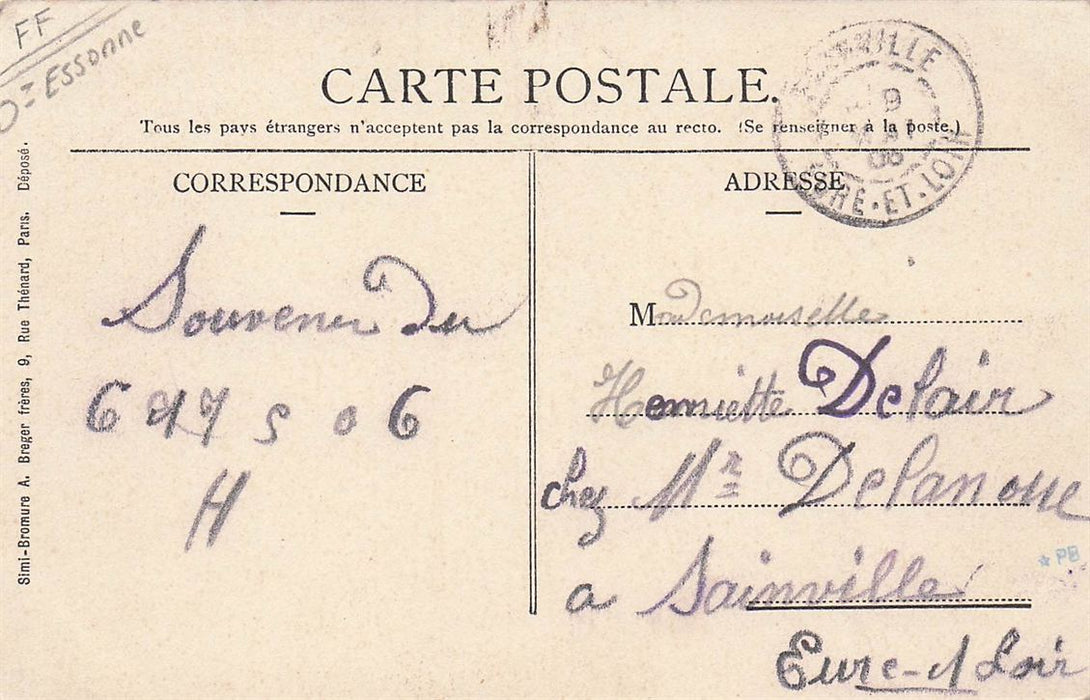 FF
Essonne
CARTE POSTALE.
Tous les pays étrangers n'acceptent pas la correspondance au recto. (Se renseigner à la poste.)
CORRESPONDANCE
Souvenir du
6
5 0 6
H
Simi-Bromure A. Breger frères, 9, Rue Thénard, Paris. Déposé.
EURE-ET-LOIR
ADRESSE
Mademoiselle
Henriette Delair
chez Mr Delanoue
a Sainville
Eure-et Loir
PB